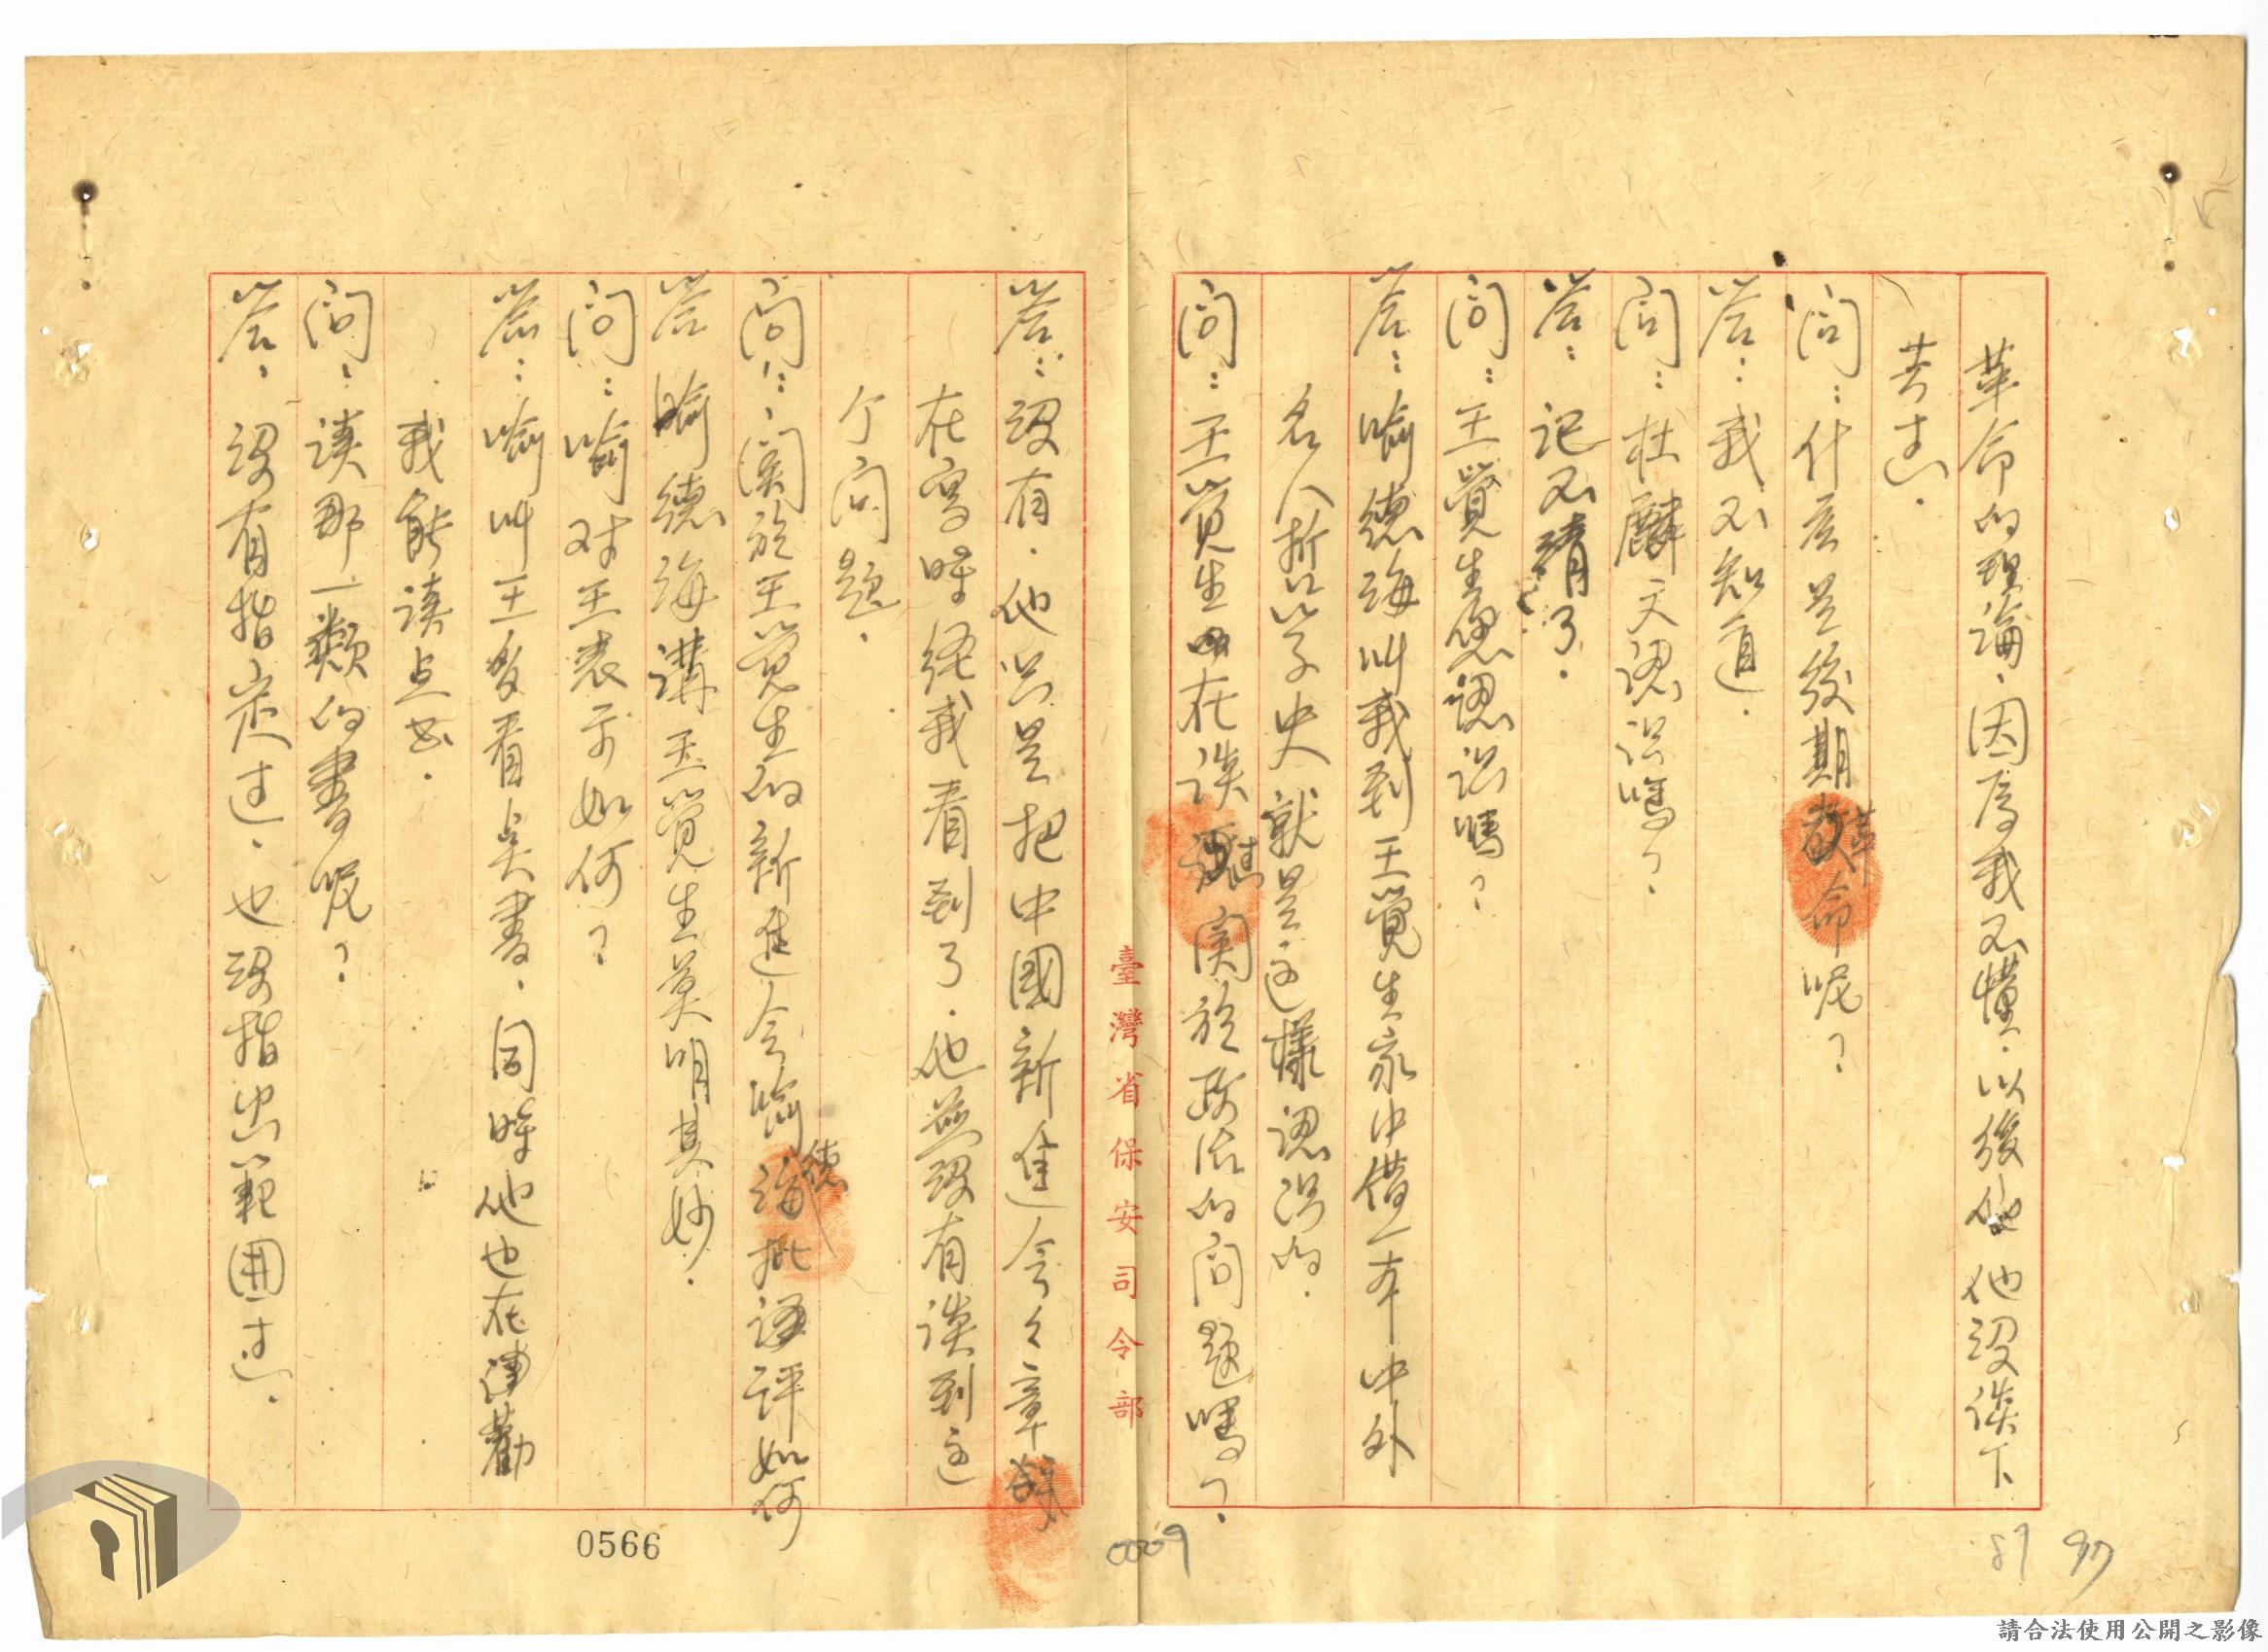 革命的理論，因為我不懂．以後他他沒談下
去过．
問：什么是後期革命呢？
答：我不知道．
問：杜麟文認识嗎？
答：记不清了．
問：王覺生您認识嗎？
答：喻德海叫我到王覺生家中借一本中外
名人哲学史就是这樣認识的．
問：王覚生在談过関於政治的问題嗎？
臺灣省保安司令部
答：没有．他只是把中國新進会会章我
在寫時给我看到了．他並没有談到这
个问題．
問：関於王覚生的新進会喻德海批評如何
答 喻德海講王覚生莫明其妙．
問：喻对王表示如何？
答：喻叫王多看点書．同時他也在勸
我能读点书．
問：读那一類的書呢？
答：没有指定过．也没指出範囲过．
0566
0009
87
請合法使用公開之影像